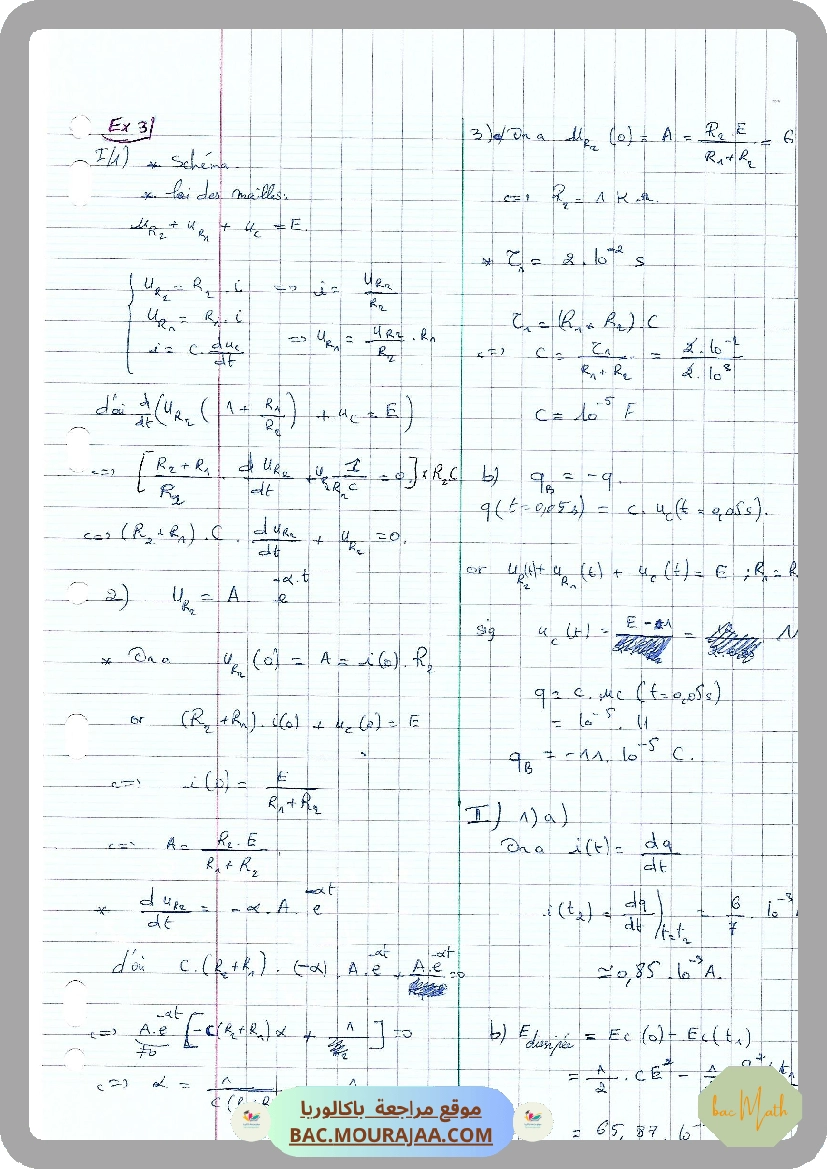 Ex 3)
I/1) * Schéma.
* loi des mailles:
u_{R2} + u_{R1} + u_c = E.
u_{R2} = R_2 . i => i = u_{R2}/R_2
u_{R1} = R_1 . i
=> u_{R1} = u_{R2}/R_2 . R_1
i = c . du_c/dt
d'où d/dt (u_{R2} (1 + R_1/R_2) + u_c = E)
<=> [(R_2 + R_1)/R_2 . d u_{R2}/dt + u_{R2} 1/(R_2 C) = 0] × R_2 C
<=> (R_2 + R_1) . C . d u_{R2}/dt + u_{R2} = 0.
2) u_{R2} = A e^{-α.t}
* On a u_{R2}(0) = A = i(0) . R_2
or (R_2 + R_1) . i(0) + u_c(0) = E
<=> i(0) = E/(R_1 + R_2)
<=> A = R_2 . E/(R_1 + R_2)
* d u_{R2}/dt = -α . A . e^{-αt}
d'où C . (R_2 + R_1) . (-α) . A . e^{-αt} + A . e^{-αt} = 0
<=> A . e^{-αt} [-C(R_2 + R_1) α + 1] = 0
≠0
<=> α = 1/
3) a/ On a u_{R2}(0) = A = R_2 . E/(R_1 + R_2) = 6
<=> R_2 = 1 KΩ.
* τ_1 = 2 . 10^{-2} s
τ_1 = (R_1 + R_2) . C
<=> C = τ_1/(R_1 + R_2) = 2 . 10^{-2}/2 . 10^3
C = 10^{-5} F
b) q_B = -q.
q(t = 0,05s) = c . u_c(t = 0,05s).
or u_{R2}(t) + u_{R1}(t) + u_c(t) = E ; R_1 = R
sig u_c(t) = E - 1 =
q = c . u_c (t = 0,05s)
= 10^{-5} . 11
q_B = -11 . 10^{-5} C.
II) 1) a)
On a i(t) = dq/dt
i(t_2) = dq/dt)_{t=t_2} = 6/7 10^{-3}
≃ 0,85 . 10^{-3} A.
b) E_{dissipée} = Ec(0) - Ec(t_1)
= 1/2 . C E^2 -
= 65,87 . 10
موقع مراجعة باكالوريا
BAC.MOURAJAA.COM
bac Math